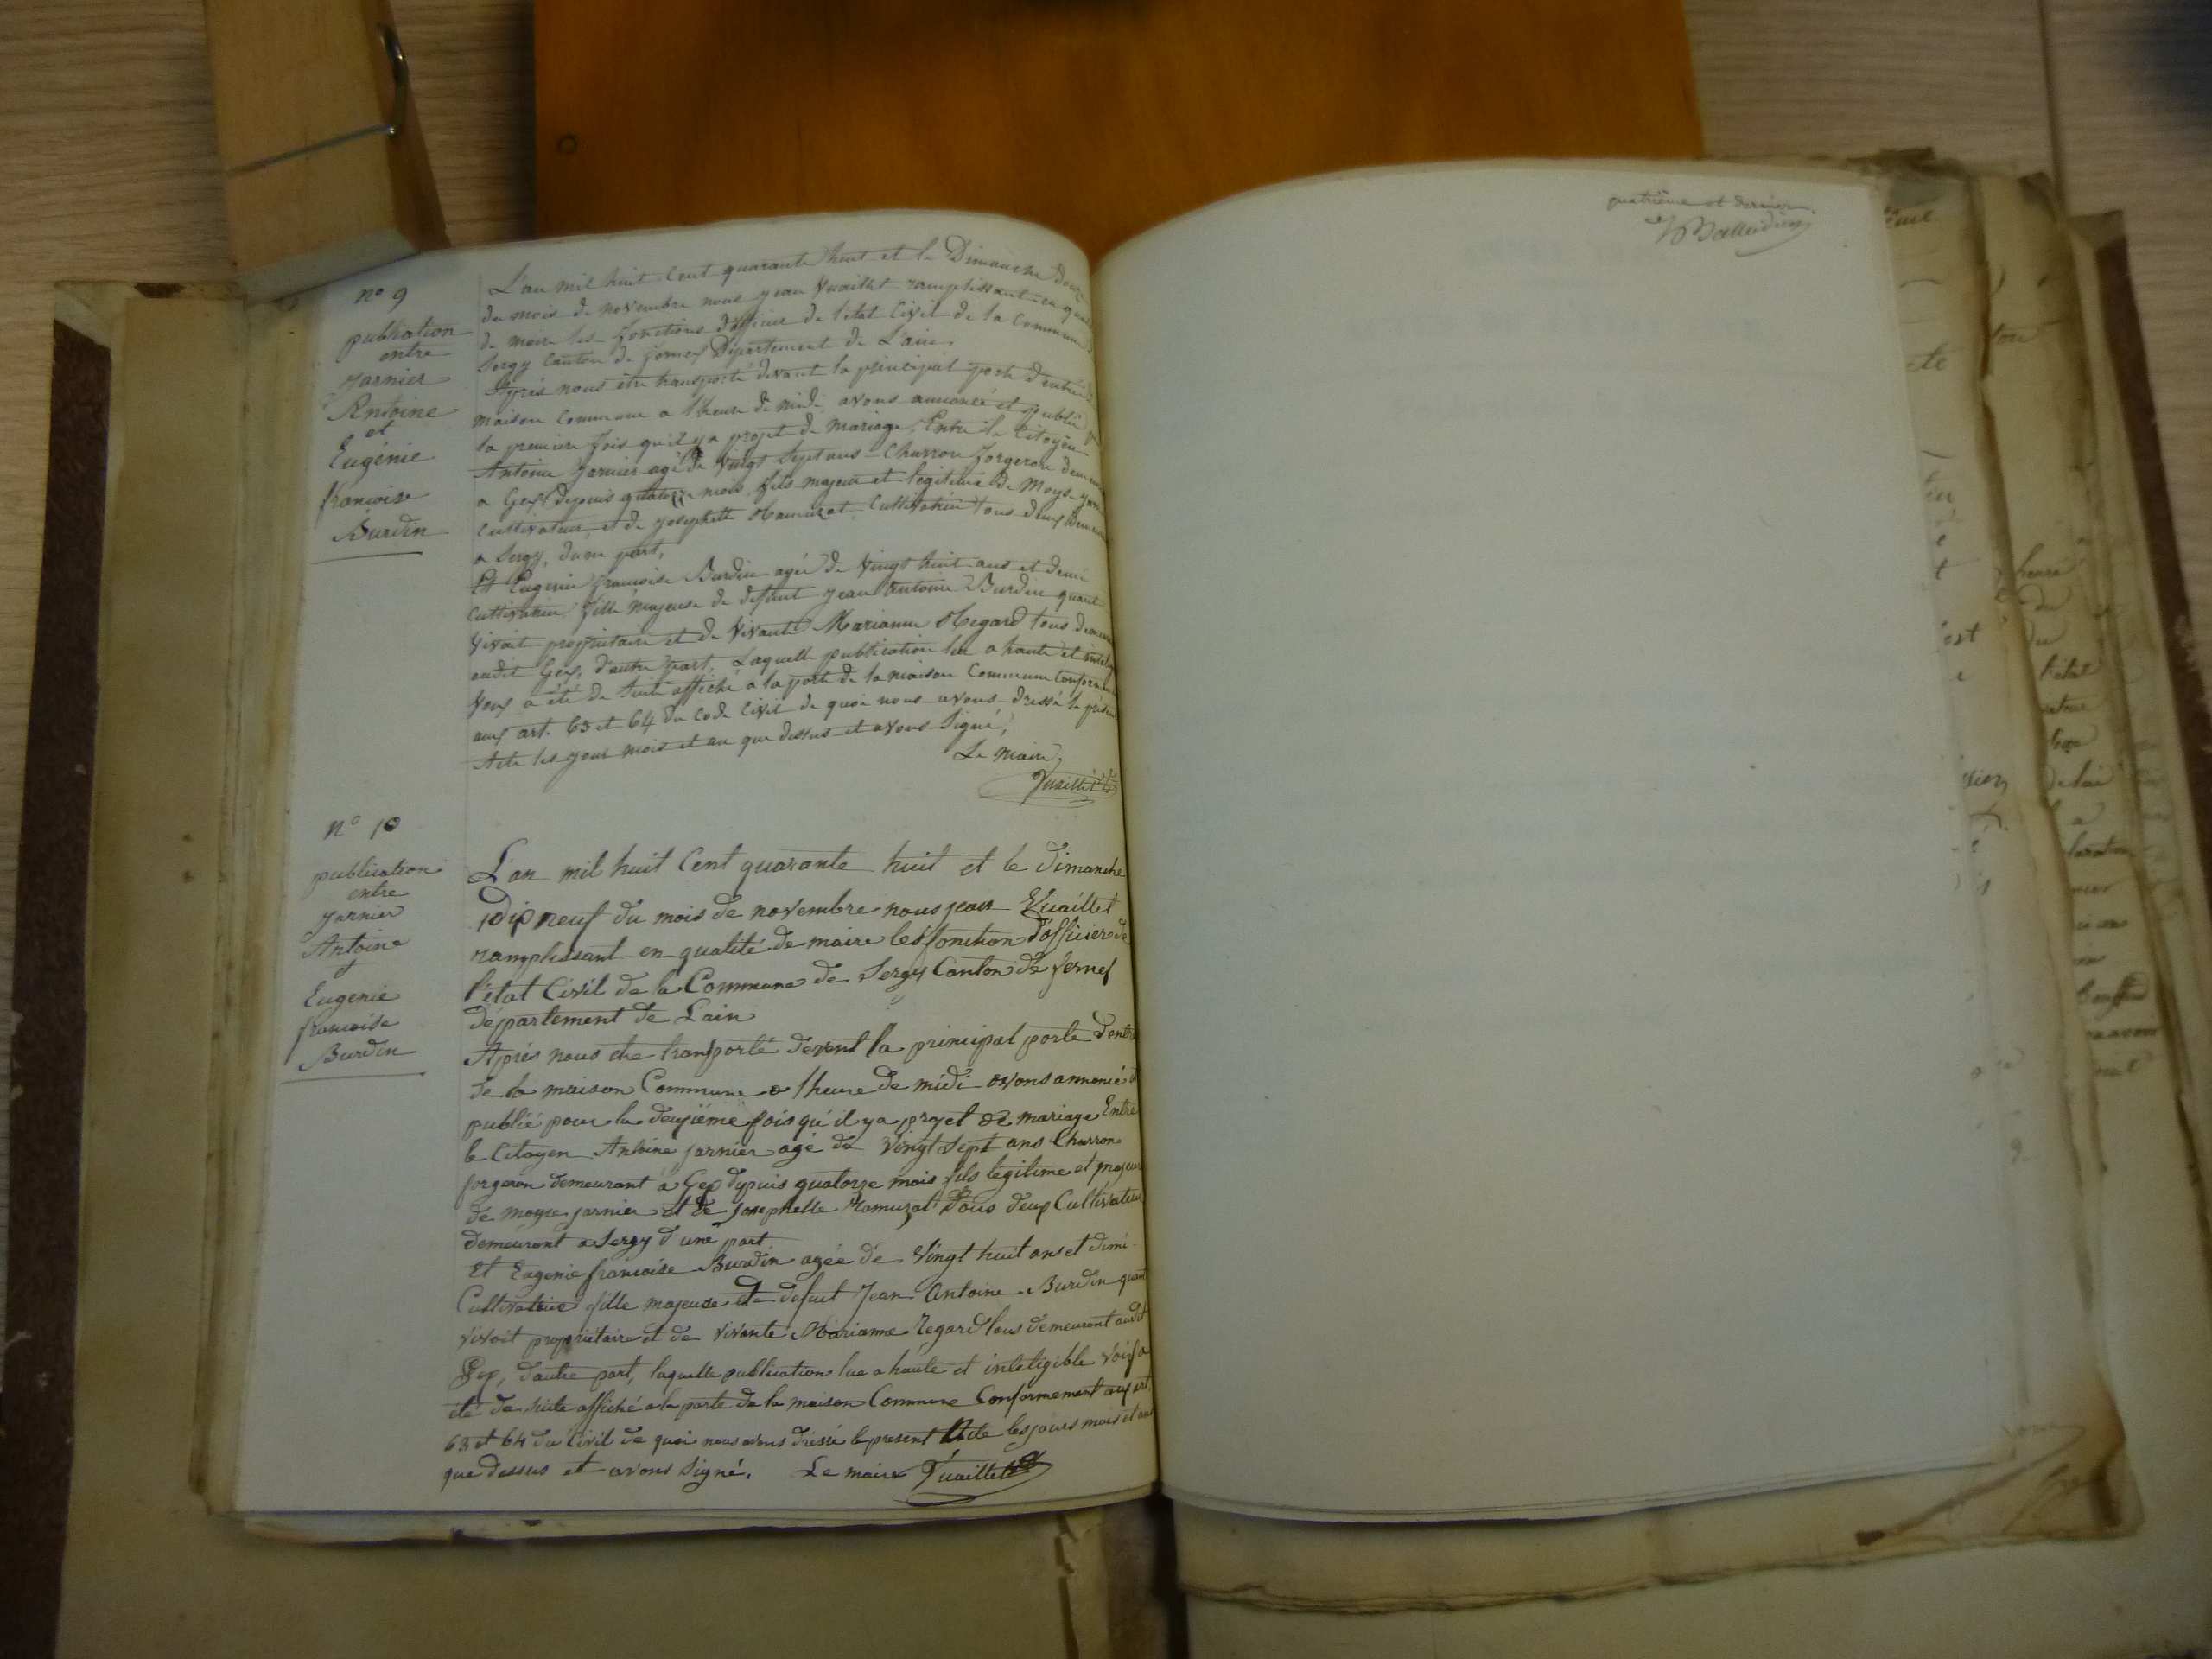 n° 9
publication
entre
Jarnier
Antoine
et
Eugénie
francoise
Burdin
L'an mil huit Cent quarante huit et le Dimanche douze
du mois de novembre nous jean Vuaillet ramplissant en qualité
de maire les fonctions d'officier de l'état Civil de la Commune
Sergy Canton de fernex Département de L'ain.
Après nous être transporté devant la principal porte d'entrée
maison Commune a l'heure de midi avons annoncé et publié
la premiere fois qu'il y a projet de mariage, Entre le Citoyen
Antoine Jarnier agé de Vingt Sept ans Charron forgeron
a Gex depuis quatorze mois, fils majeur et légitime de Moyse
Cultivateur et de josephette Ramuzat Cultivatrice tous deux
a Sergy, d'une part,
Et Eugenie francoise Burdin agée de Vingt huit ans et demi
Cultivatrice fille majeuse de defunt jean Antoine Burdin quant
Vivait proprietaire et de Vivante Marianne Regard tous
audit Gex, d'autre part, Laquelle publication lue a haute et
Voix a été de suite affiché a la porte de la maison Commune
aux art. 63 et 64 du Code Civil de quoi nous avons dressé le
Acte les jour mois et an que dessus et avons Signé,
Le maire,
Vuaillet
n° 10
publication
entre
Jarnier
Antoine
et
Eugenie
francoise
Burdin
L'an mil huit Cent quarante huit et le dimanche
dix neuf du mois de novembre nous jean Vuaillet
ramplissant en qualité de maire les fonction d'officier de
l'état Civil de la Commune de Sergy Canton de fernex
département de Lain
Après nous etre transporté devent la principal porte
de la maison Commune a l'heure de midi avons annoncé
publié pour la deuxieme fois qu'il y a projet de mariage Entre
le Citoyen Antoine jarnier agé de Vingt Sept ans Charron
forgeron demeurant à Gex depuis quatorze mois fils légitime et majeur
de moyse jarnier et de josephette Ramuzat Tous deux Cultivateur
demeurant a Sergy d'une part
Et Eugenie francoise Burdin agée de Vingt huit ans et dimi
Cultivatrice fille majeuse de defunt Jean Antoine Burdin quant
vivoit proprietaire et de vivante Marianne Regard tous demeurant audit
Gex, d'autre part, laquelle publication lue a haute et inteligible voix a
été de suite affiché a la porte de la maison Commune Conformement aux art.
63 et 64 du Civil de quoi nous avons dressé le present Acte les jours mois et an
que dessus et avons Signé. Le maire Vuaillet
quatrième et dernier.